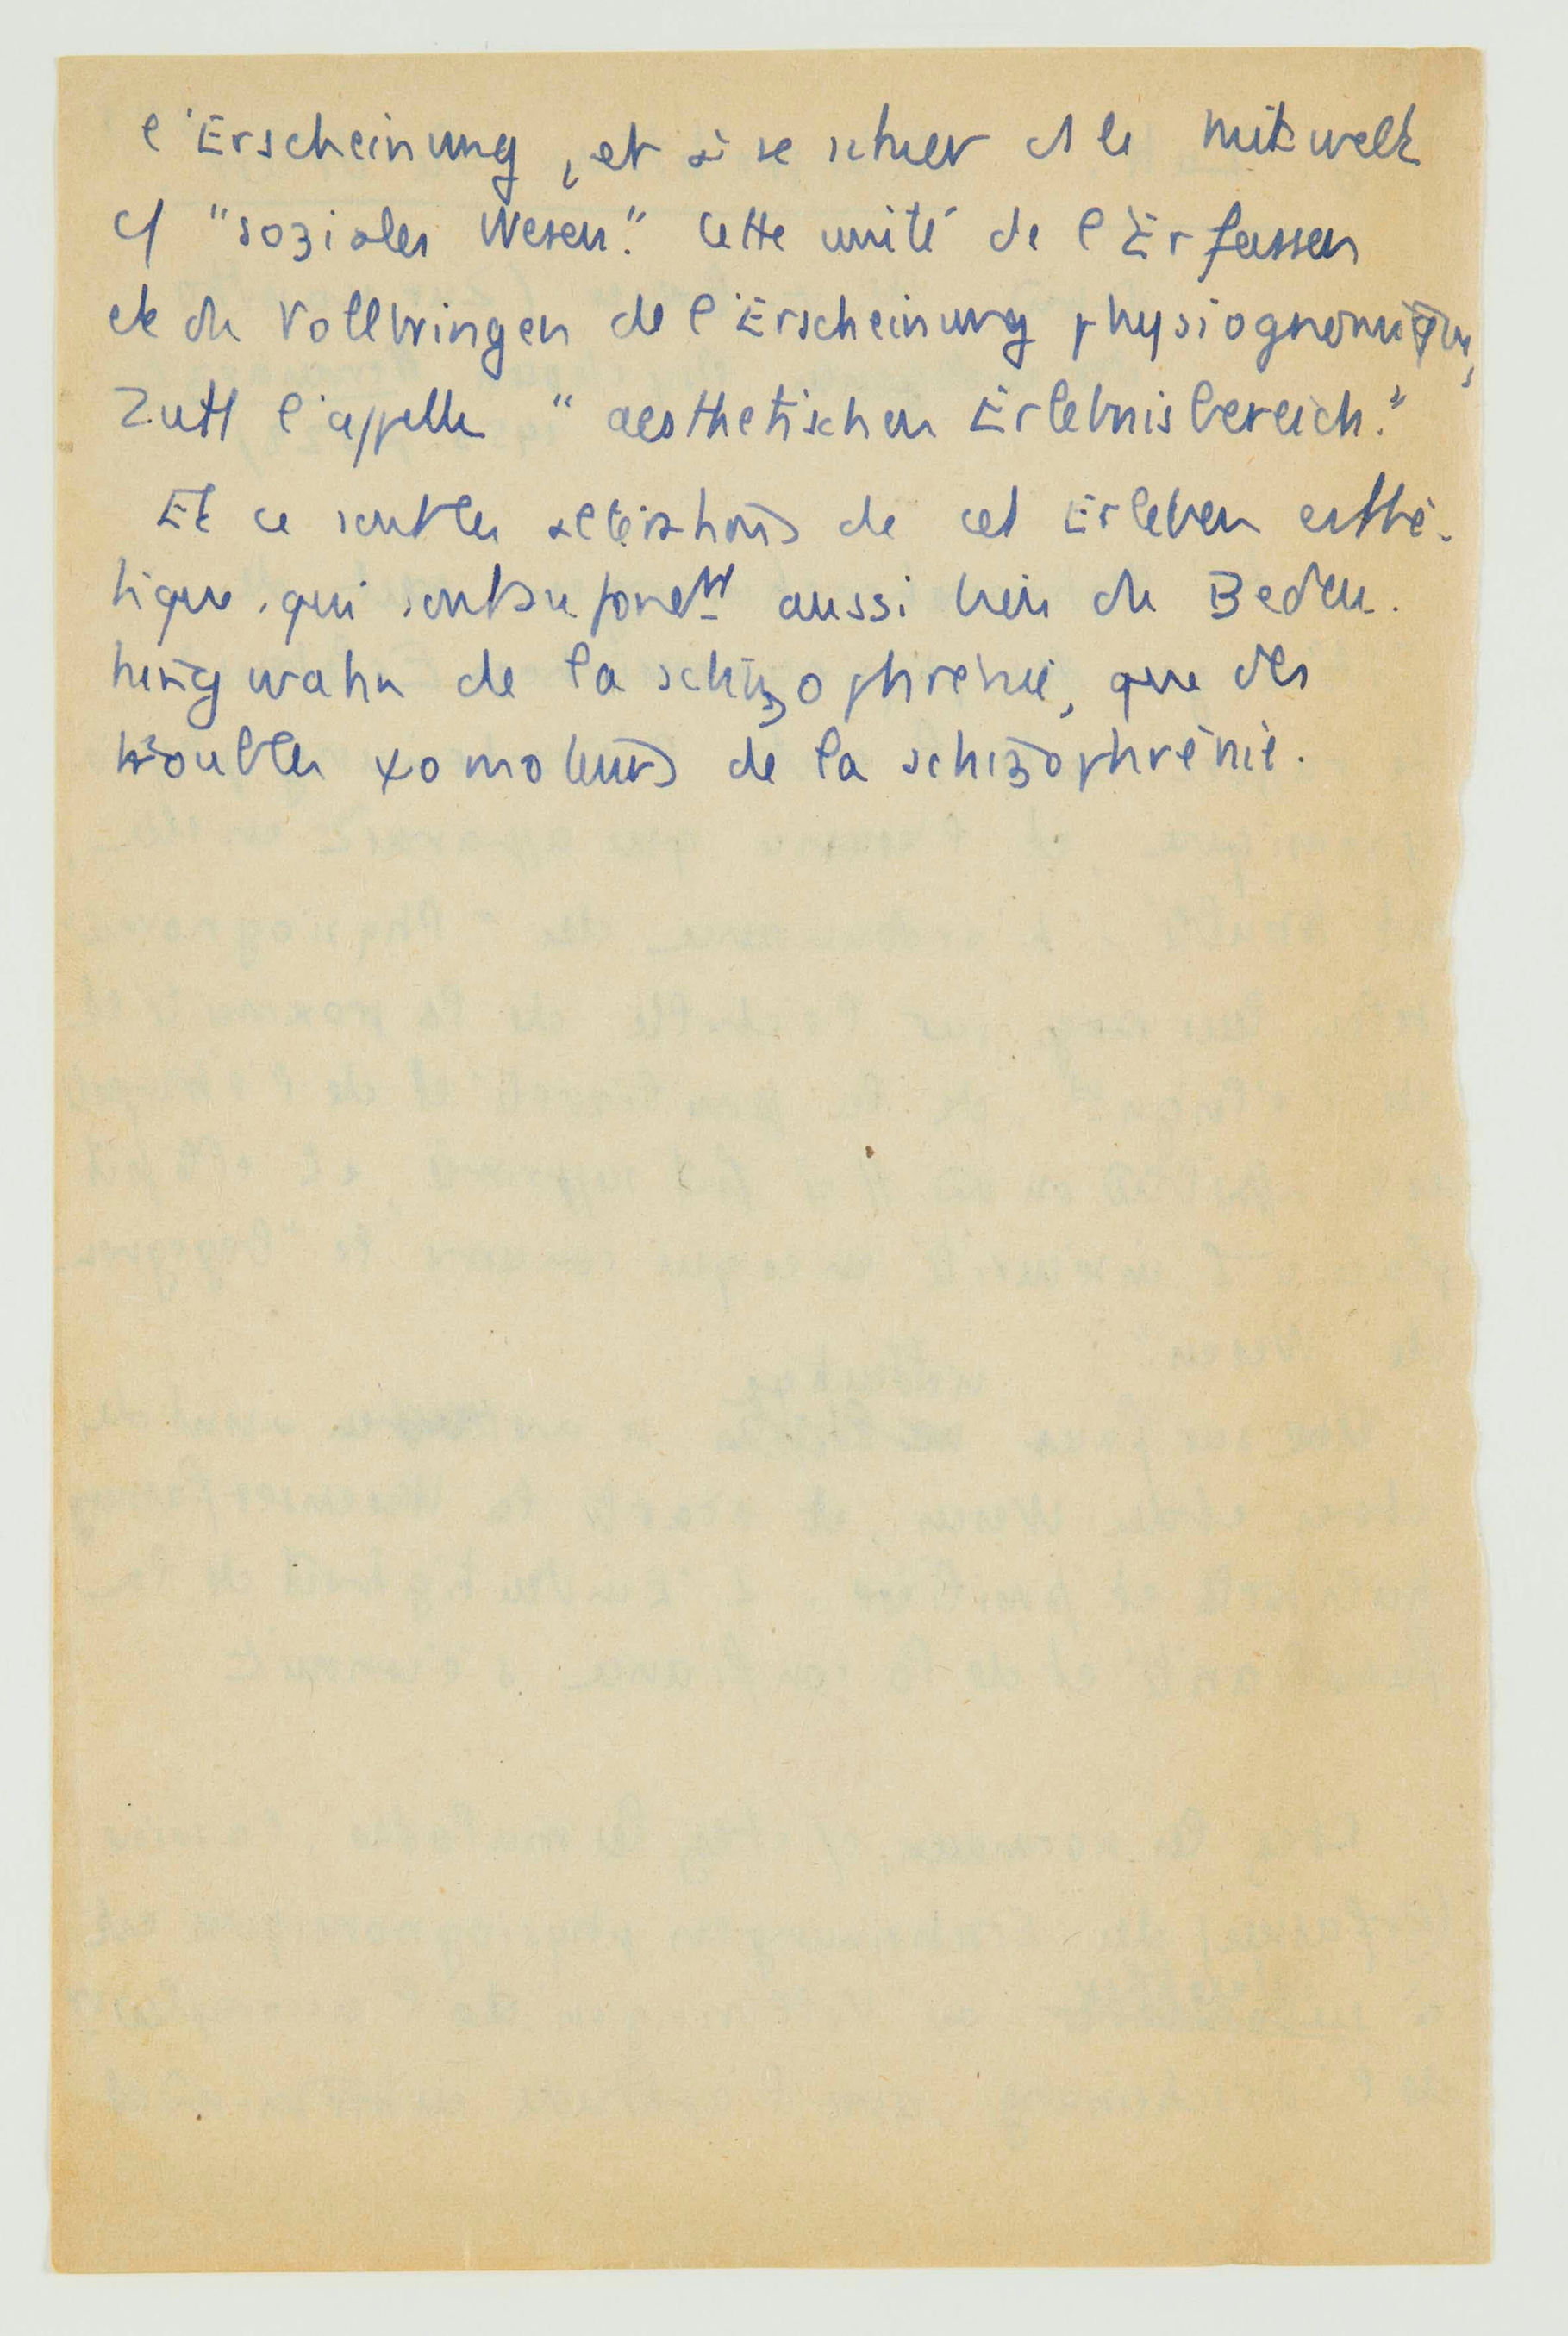 l'Erscheinung, et à se situer ds la Mitwelt
cf "soziales Wesen". Cette unité de l'Erfassen
et du Vollbringen de l'Erscheinung physiognomique,
Zutt l'appelle "aesthetischen Erlebnisbereich."
Et ce sont les altérations de cet Erleben esthé-
tique, qui sont aussi bien du Bedeu-
tungwahn de la schizophrénie, que des
troubles de la schizophrénie.